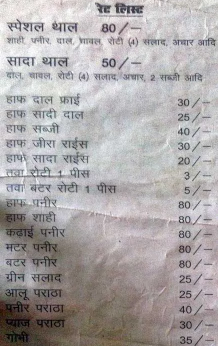 रेट लिस्ट
स्पेशल थाल 80/-
शाही, पनीर, दाल, चावल, रोटी (4) सलाद, अचार आदि
सादा थाल 50/-
दाल, चावल, रोटी (4) सलाद, अचार, 2 सब्जी आदि
हाफ दाल फ्राई 30/-
हाफ सादी दाल 25/-
हाफ सब्जी 40/-
हाफ जीरा राईस 30/-
हाफ सादा राईस 20/-
तवा रोटी 1 पीस 3/-
तवा बटर रोटी 1 पीस 5/-
हाफ पनीर 80/-
हाफ शाही 80/-
कढ़ाई पनीर 80/-
मटर पनीर 80/-
बटर पनीर 80/-
ग्रीन सलाद 25/-
आलू पराठा 25/-
पनीर पराठा 40/-
प्याज पराठा 30/-
गोभी 35/-